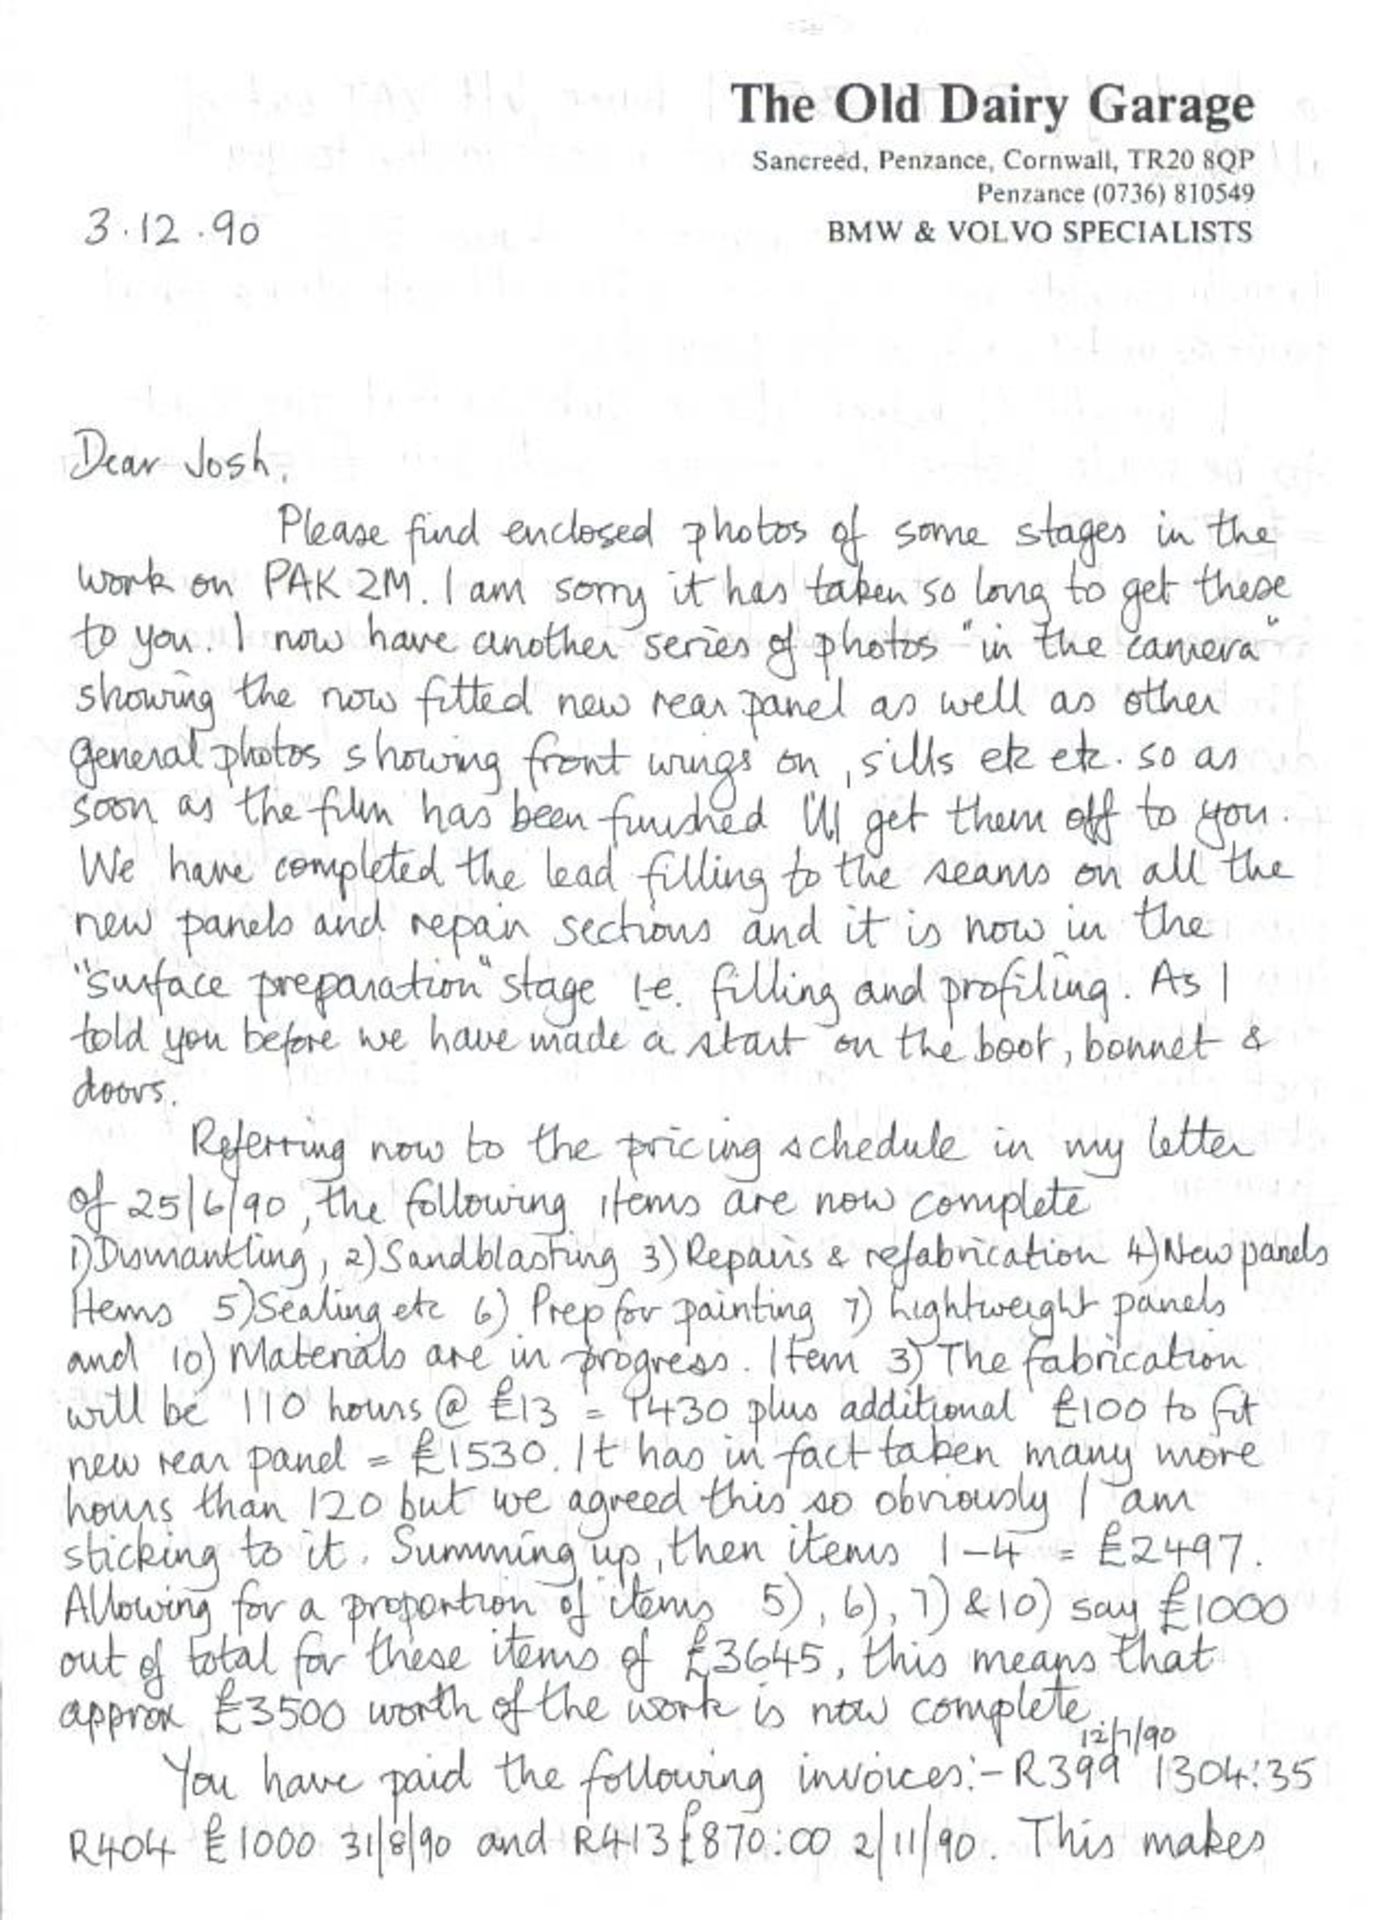 The Old Dairy Garage
Sancreed, Penzance, Cornwall, TR20 8QP
Penzance (0736) 810549
BMW & VOLVO SPECIALISTS
3.12.90
Dear Josh,
Please find enclosed photos of some stages in the
work on PAK 2M. I am sorry it has taken so long to get these
to you. I now have another series of photos "in the camera"
showing the now fitted new rear panel as well as other
general photos showing front wings on, sills etc etc. so as
soon as the film has been finished I'll get them off to you.
We have completed the lead filling to the seams on all the
new panels and repair sections and it is now in the
"surface preparation" stage i.e. filling and profiling. As I
told you before we have made a start on the boot, bonnet &
doors.
Referring now to the pricing schedule in my letter
of 25/6/90, the following items are now complete
1) Dismantling, 2) Sandblasting 3) Repairs & refabrication 4) New panels
Items 5) Sealing etc 6) Prep for painting 7) Lightweight panels
and 10) Materials are in progress. Item 3) The fabrication
will be 110 hours @ £13 = 1430 plus additional £100 to fit
new rear panel = £1530. It has in fact taken many more
hours than 120 but we agreed this so obviously I am
sticking to it. Summing up, then items 1-4 = £2497.
Allowing for a proportion of items 5), 6), 7) & 10) say £1000
out of total for these items of £3645, this means that
approx £3500 worth of the work is now complete
You have paid the following invoices:- R399 12/7/90 1304:35
R404 £1000 31/8/90 and R413 £870:00 2/11/90. This makes